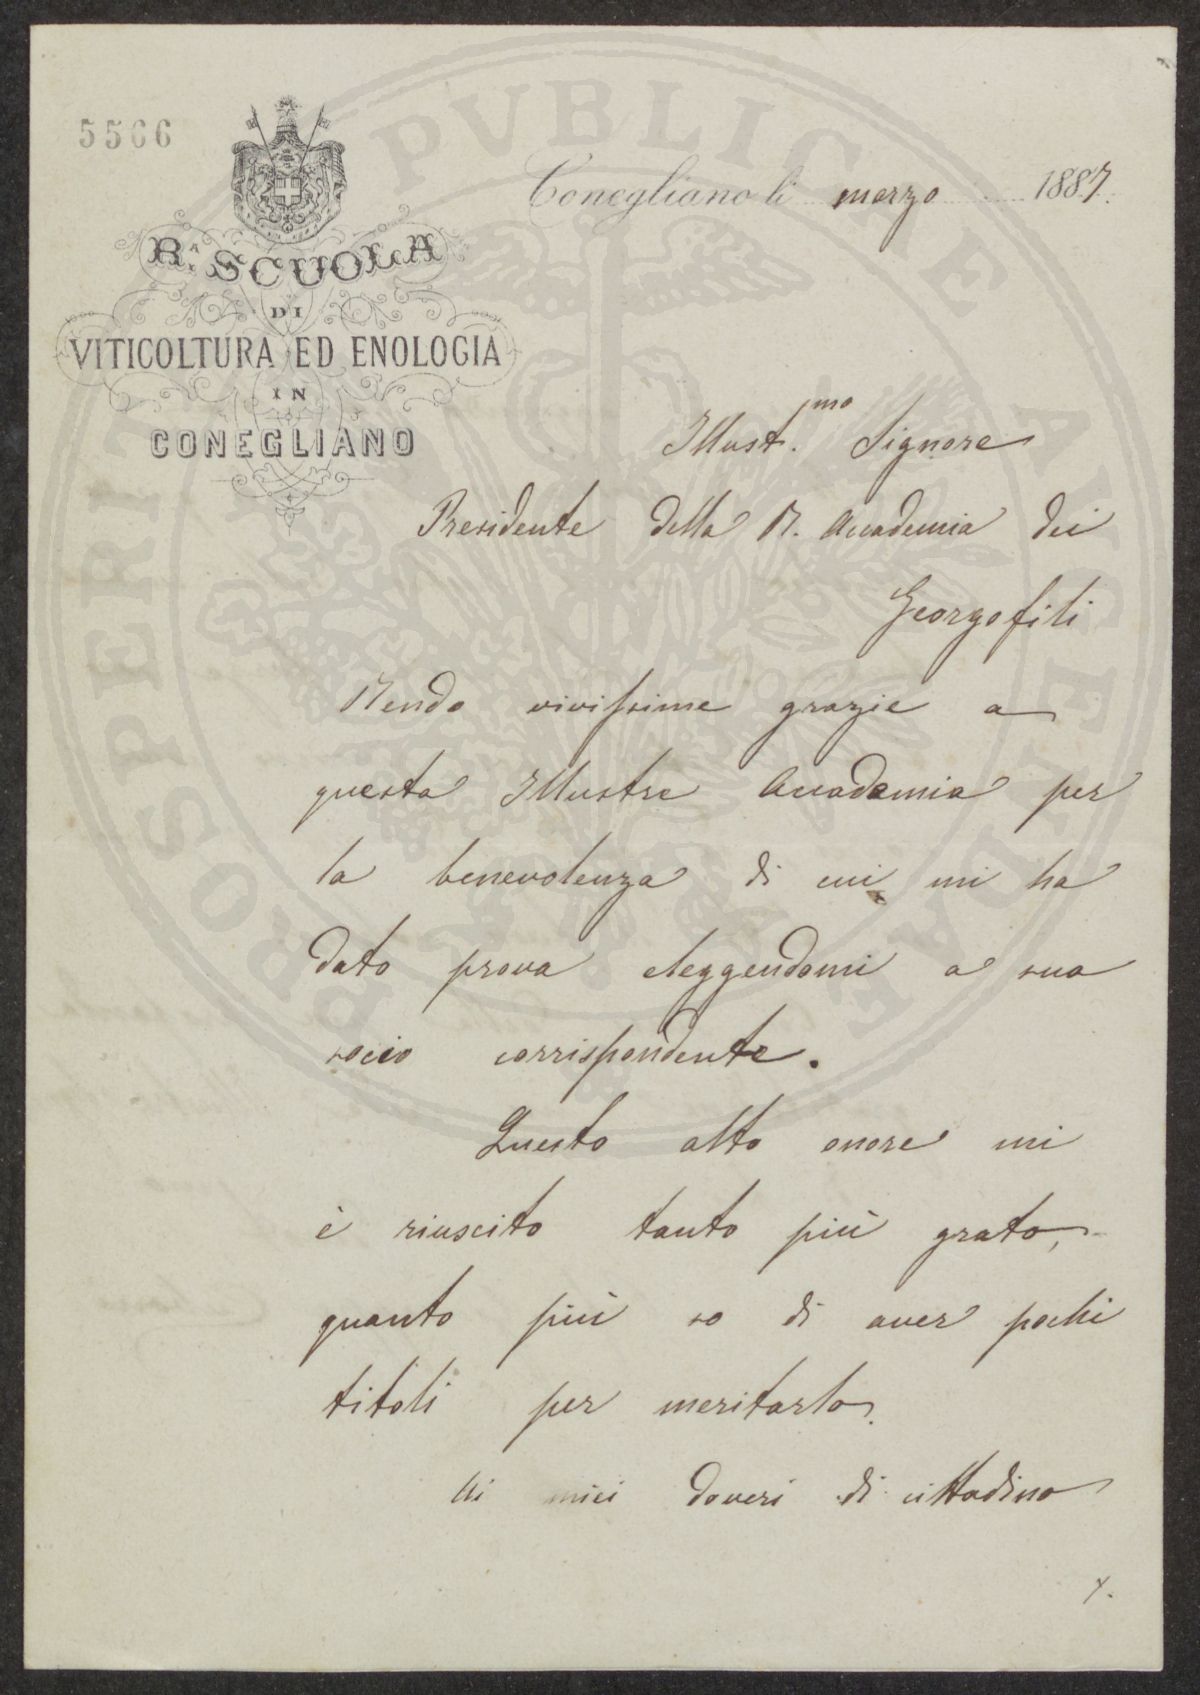 5566
R.A SCUOLA
DI
VITICOLTURA ED ENOLOGIA
IN
CONEGLIANO
Conegliano li marzo 1887.
Illust.mo Signore
Presidente della R. Accademia dei
Georgofili
Rendo vivissime grazie a
questa Illustre Accademia per
la benevolenza di cui mi ha
dato prova eleggendomi a suo
socio corrispondente.
Questo alto onore mi
è riuscito tanto più grato,
quanto più so di aver pochi
titoli per meritarlo.
Ai miei doveri di cittadino
PROSPERITATI PVBLICAE AVGENDAE